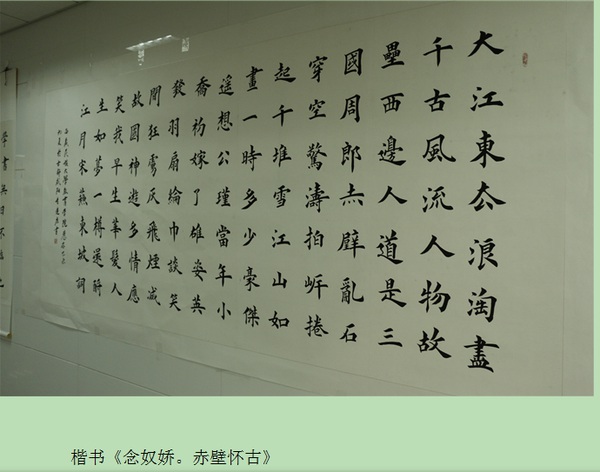 大江東去浪淘盡
千古風流人物故
壘西邊人道是三
國周郎赤壁亂石
穿空驚濤拍岍捲
起千堆雪江山如
畫一時多少豪傑
遥想公瑾當年小
喬初嫁了雄姿英
發羽扇綸巾談笑
間狂虜灰飛煙滅
故國神遊多情應
笑我早生華髮人
生如夢一樽還酹
江月宋蘇東坡詞
楷书《念奴娇。赤壁怀古》